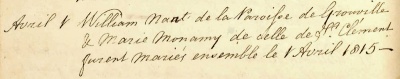 Avril 1 William Nant de la Paroisse de Grouville
& Marie Monamy de celle de St. Clément
furent Mariés ensemble le 1 Avril 1815 —